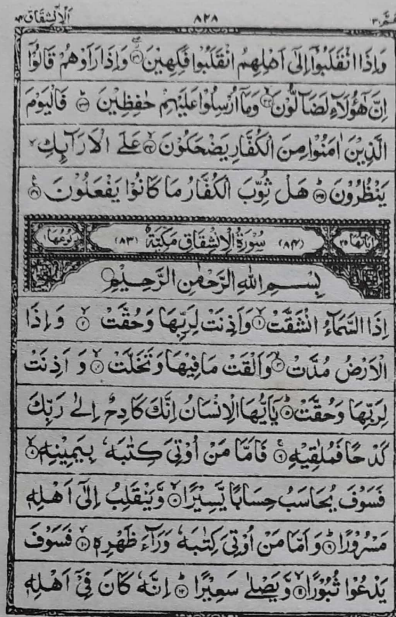 عمّ ٣٠ ٨٢٨ الانشقاق ٨٤
وَاِذَا انْقَلَبُوْۤا اِلٰۤى اَهْلِهِمُ انْقَلَبُوْا فَكِهِيْنَ ۖ٣١ وَاِذَا رَاَوْهُمْ قَالُوْۤا
اِنَّ هٰۤؤُلَآءِ لَضَآلُّوْنَ ۙ٣٢ وَمَاۤ اُرْسِلُوْا عَلَيْهِمْ حٰفِظِيْنَ ؕ٣٣ فَالْيَوْمَ
الَّذِيْنَ اٰمَنُوْا مِنَ الْكُفَّارِ يَضْحَكُوْنَ ۙ٣٤ عَلَى الْاَرَآئِكِ ۙ
يَنْظُرُوْنَ ؕ٣٥ هَلْ ثُوِّبَ الْكُفَّارُ مَا كَانُوْا يَفْعَلُوْنَ ٣٦
اٰيَاتُهَا ٢٥ (٨٤) سُوْرَةُ الْاِنْشِقَاقِ مَكِّيَّةٌ (٨٣) رُكُوْعُهَا
بِسْمِ اللّٰهِ الرَّحْمٰنِ الرَّحِيْمِ
اِذَا السَّمَآءُ انْشَقَّتْ ۙ١ وَاَذِنَتْ لِرَبِّهَا وَحُقَّتْ ۙ٢ وَاِذَا
الْاَرْضُ مُدَّتْ ۙ٣ وَاَلْقَتْ مَا فِيْهَا وَتَخَلَّتْ ۙ٤ وَاَذِنَتْ
لِرَبِّهَا وَحُقَّتْ ؕ٥ يٰۤاَيُّهَا الْاِنْسَانُ اِنَّكَ كَادِحٌ اِلٰى رَبِّكَ
كَدْحًا فَمُلٰقِيْهِ ۚ٦ فَاَمَّا مَنْ اُوْتِىَ كِتٰبَهٗ بِيَمِيْنِهٖ ۙ٧
فَسَوْفَ يُحَاسَبُ حِسَابًا يَّسِيْرًا ۙ٨ وَّيَنْقَلِبُ اِلٰۤى اَهْلِهٖ
مَسْرُوْرًا ؕ٩ وَاَمَّا مَنْ اُوْتِىَ كِتٰبَهٗ وَرَآءَ ظَهْرِهٖ ۙ١٠ فَسَوْفَ
يَدْعُوْا ثُبُوْرًا ۙ١١ وَّيَصْلٰى سَعِيْرًا ؕ١٢ اِنَّهٗ كَانَ فِىْۤ اَهْلِهٖ